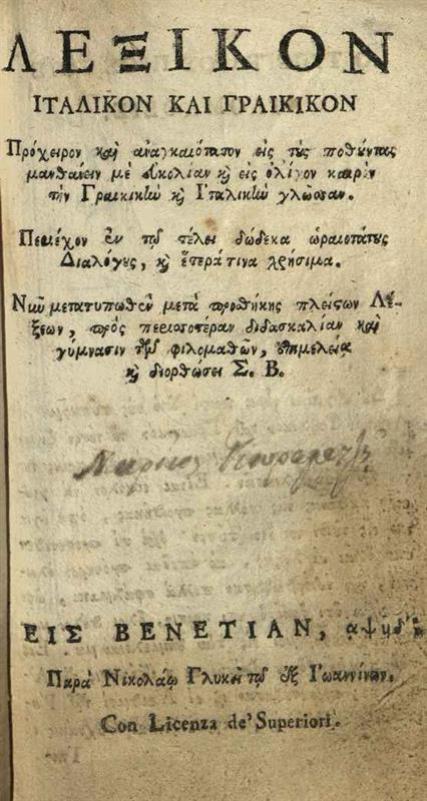 ΛΕΞΙΚΟΝ
ΙΤΑΛΙΚΟΝ ΚΑΙ ΓΡΑΙΚΙΚΟΝ
Πρόχειρον καὶ ἀναγκαιότατον εἰς τοὺς ποθοῦντας
μανθάνειν μὲ εὐκολίαν κ̀ εἰς ὀλίγον καιρὸν
τὴν Γραικικὴν κ̀ Ἰταλικὴν γλῶσσαν.
Περιέχον ἐν τῷ τέλει δώδεκα ὡραιοτάτους
Διαλόγους, κ̀ ἕτερά τινα χρήσιμα.
Νῦν μετατυπωθὲν μετὰ προσθήκης πλείςων Λέ-
ξεων, πρὸς περισσοτέραν διδασκαλίαν καὶ
γύμνασιν τῶν φιλομαθῶν, ἐπιμελείᾳ
κ̀ διορθώσει Σ. Β.
ΕΙΣ ΒΕΝΕΤΙΑΝ,
Παρὰ Νικολάῳ Γλυκεῖ τῷ ἐξ Ἰωαννίνων.
Con Licenza de' Superiori.